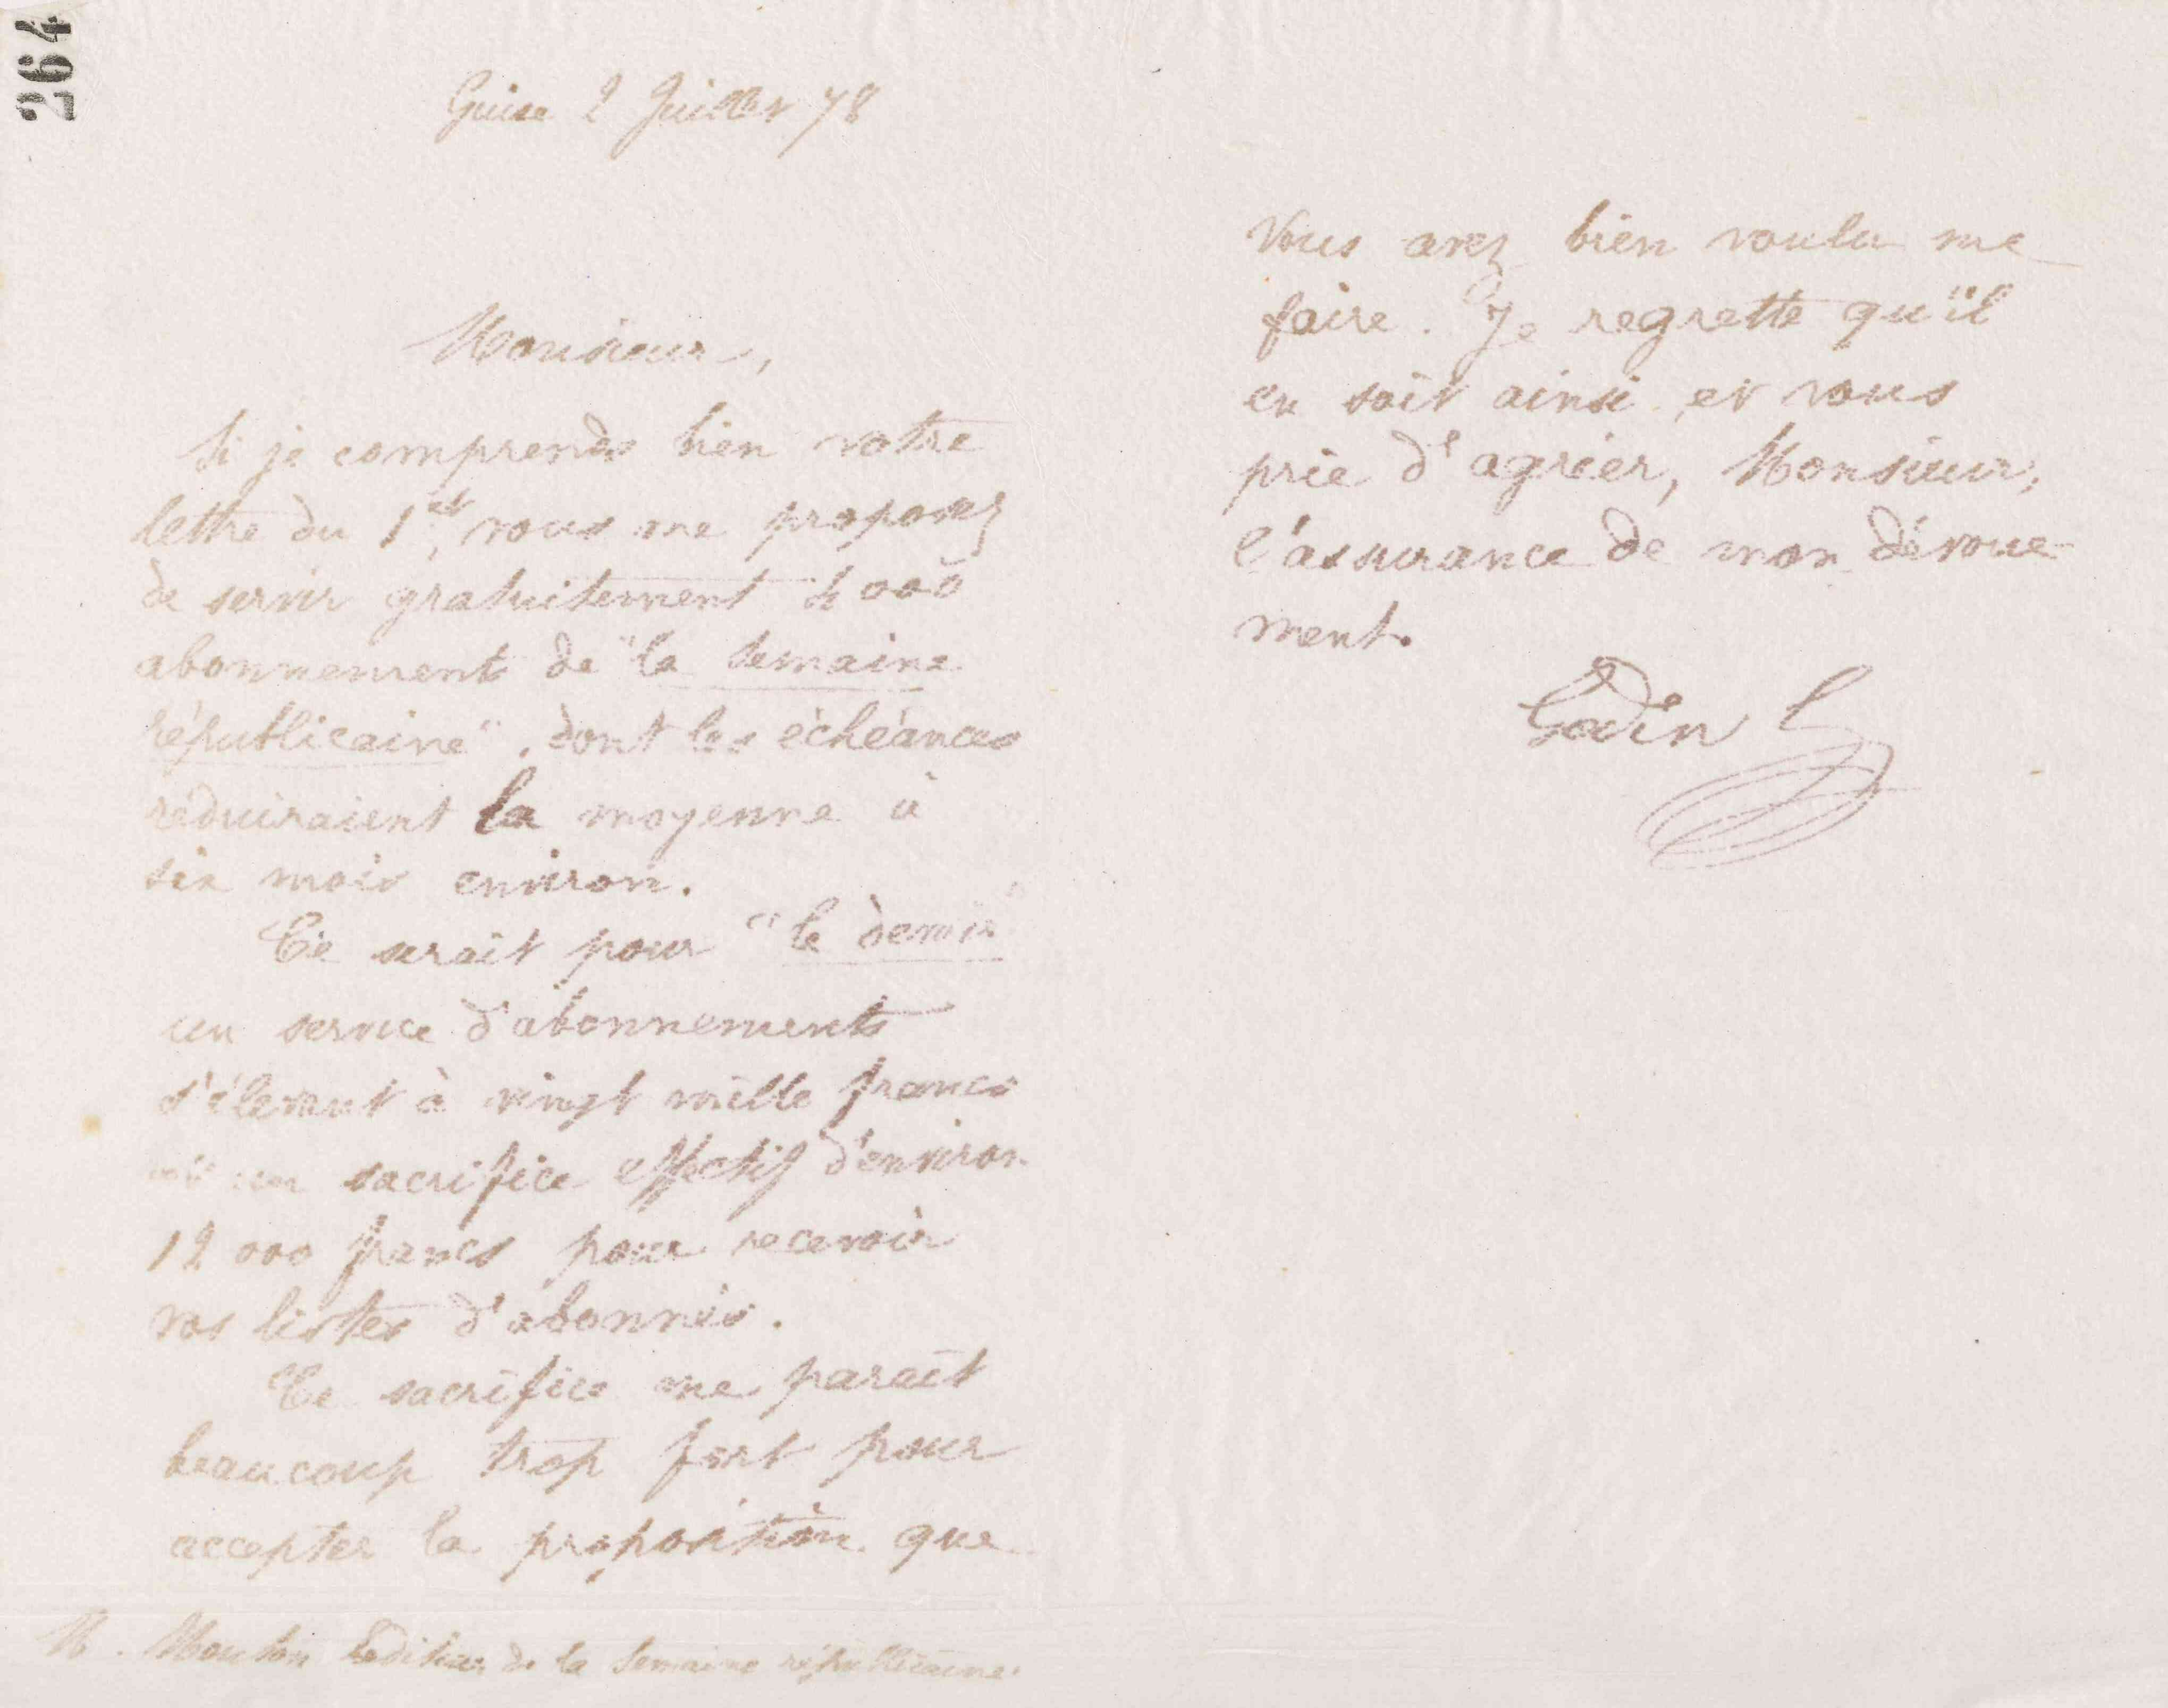 264
Guise 2 Juillet 78
Monsieur,
Si je comprends bien votre
lettre du 1er, vous me proposez
de servir gratuitement 4000
abonnements de "la Semaine
républicaine", dont les échéances
réduiraient la moyenne à
six mois environ.
Ce serait pour "le devoir"
un service d'abonnements
s'élevant à vingt mille francs
un sacrifice effectif d'environ
12 000 francs pour recevoir
vos listes d'abonnés.
Ce sacrifice me parait
beaucoup trop fort pour
accepter la proposition que
M. Mouton Editeur de la Semaine républicaine.
Vous avez bien voulu me
faire. Je regrette qu'il
en soit ainsi et vous
prie d'agréer, Monsieur,
l'assurance de mon dévoue-
ment.
Godin